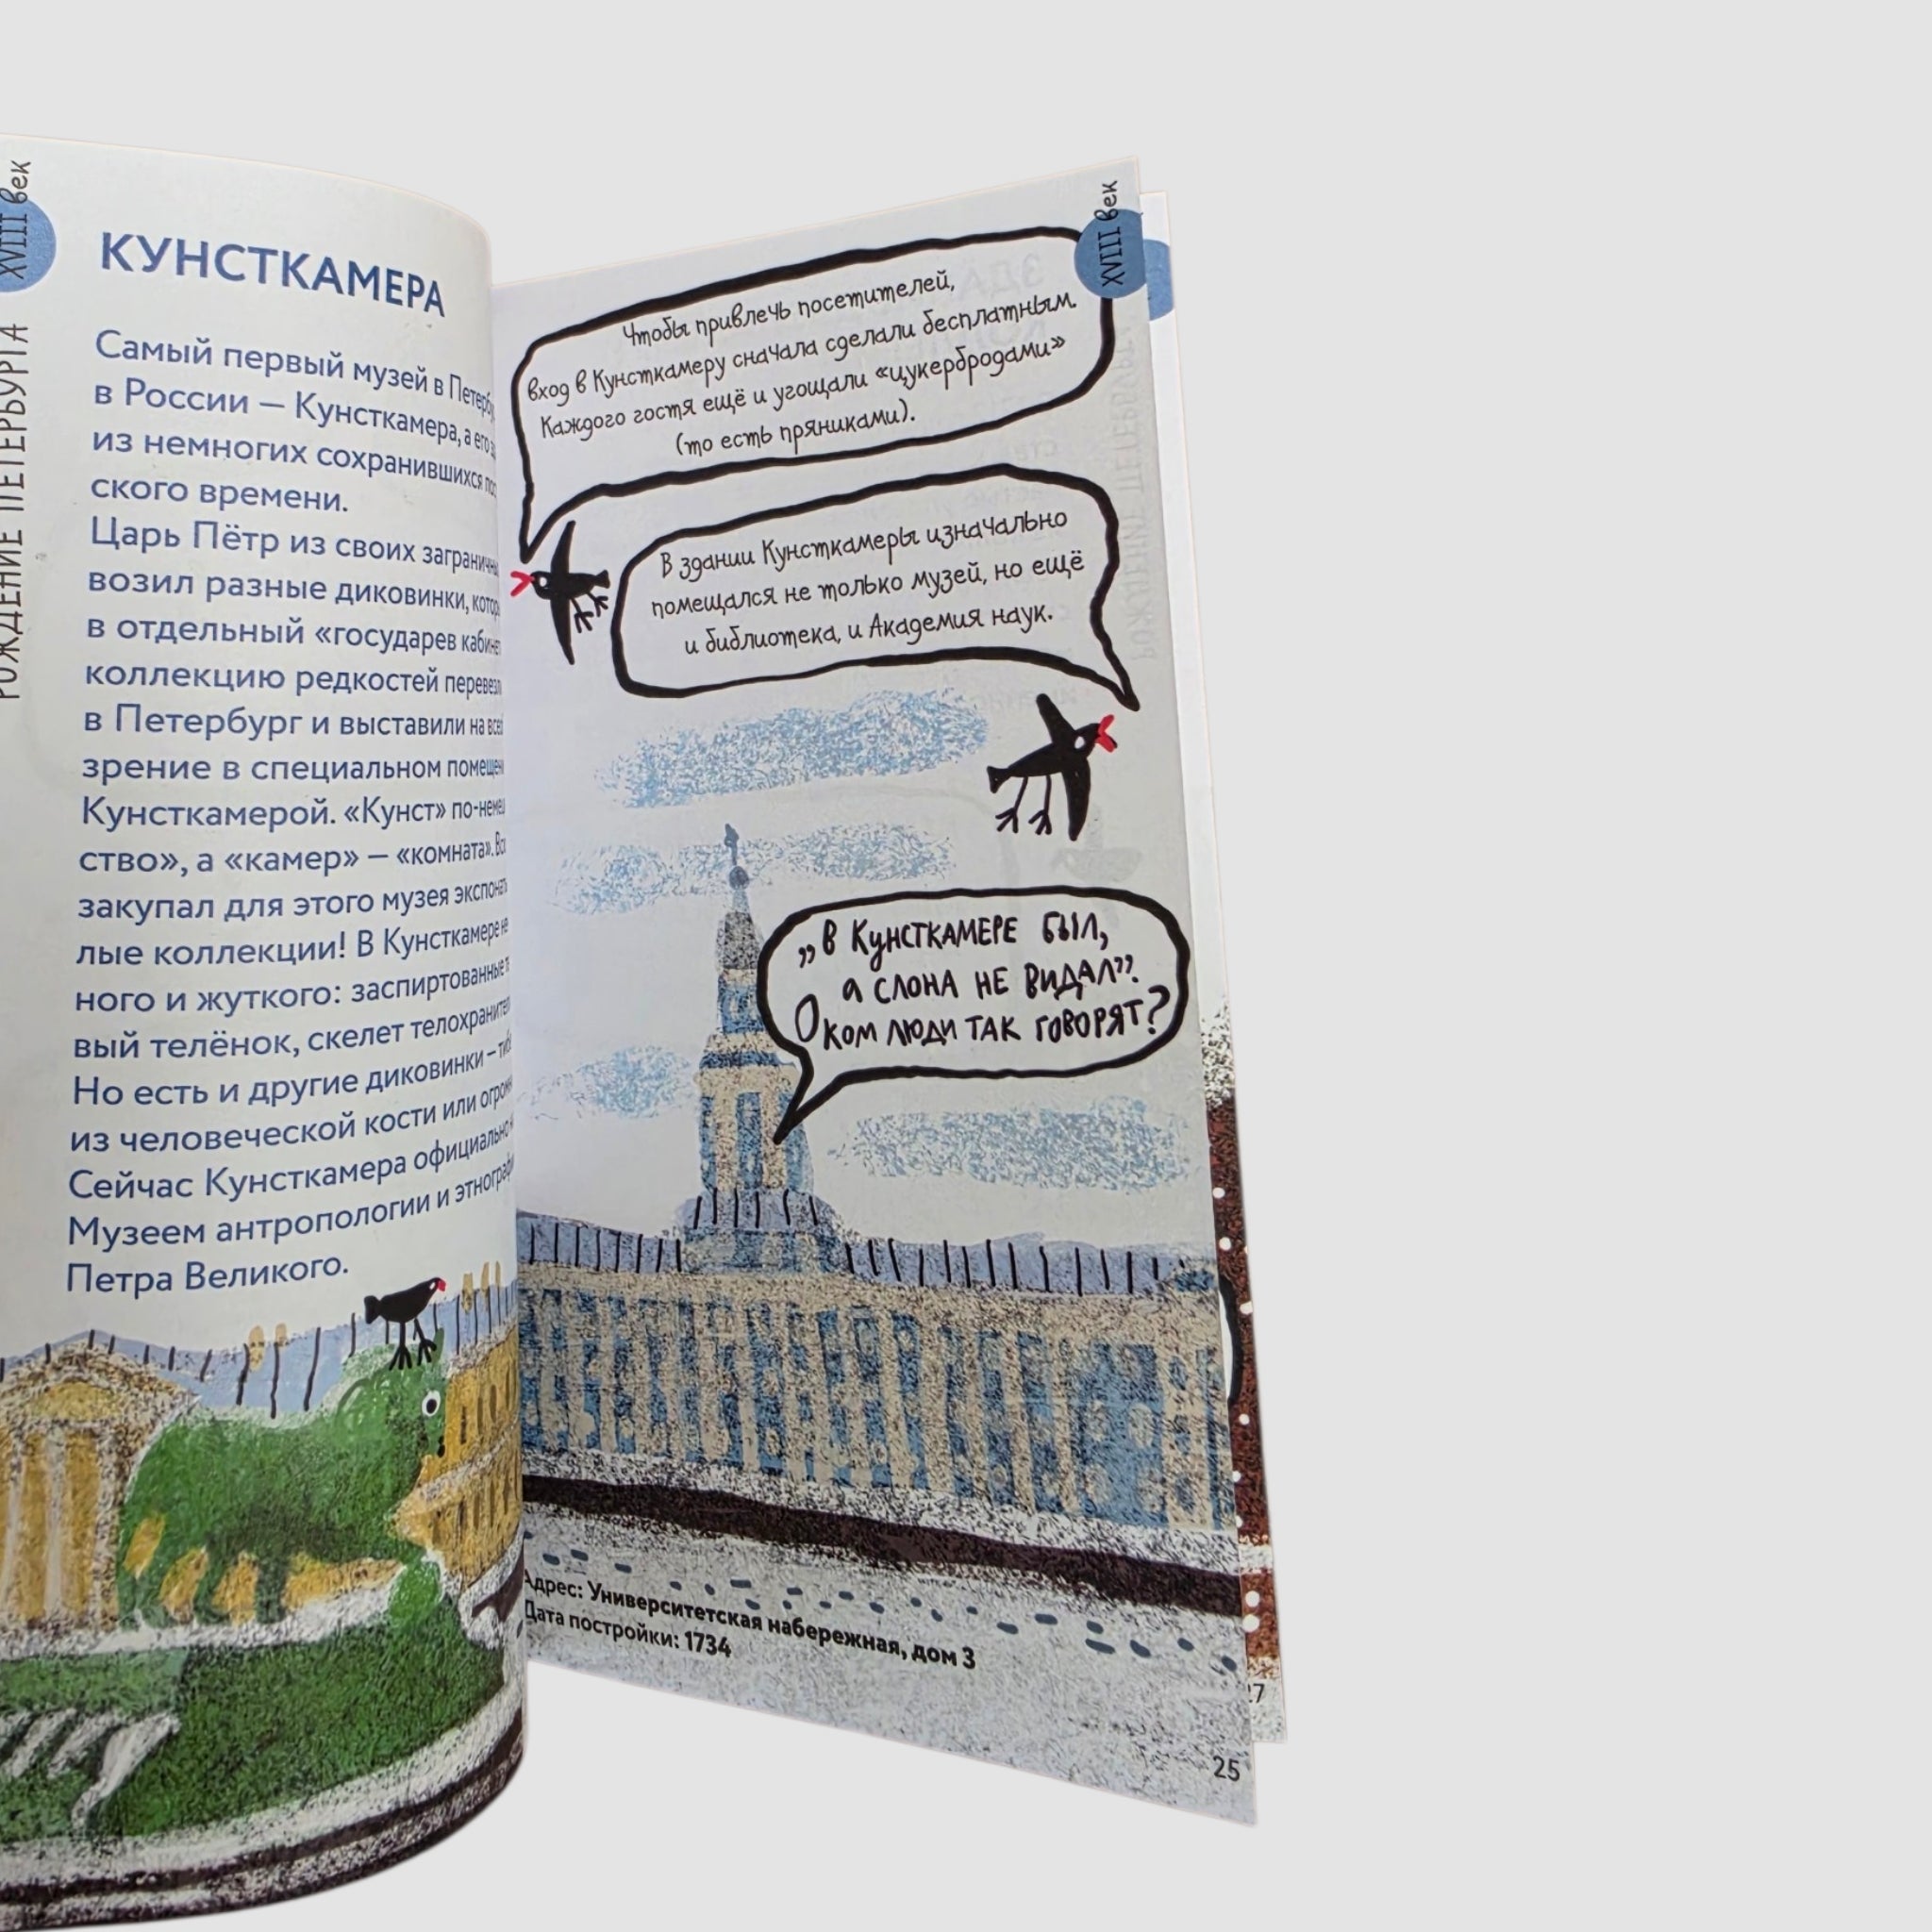 XVIII век
РОЖДЕНИЕ ПЕТЕРБУРГА
КУНСТКАМЕРА
Самый первый музей в
в России — Кунсткамера, а его
из немногих сохранившихся
ского времени.
Царь Пётр из своих
возил разные диковинки,
в отдельный «государев
коллекцию редкостей
в Петербург и выставили на
зрение в специальном
Кунсткамерой. «Кунст»
ство», а «камер» — «комната».
закупал для этого музея
лые коллекции! В Кунсткамере
ного и жуткого: заспиртованные
вый телёнок, скелет
Но есть и другие диковинки –
из человеческой кости или
Сейчас Кунсткамера официально
Музеем антропологии и
Петра Великого.
XVIII век
Чтобы привлечь посетителей,
вход в Кунсткамеру сначала сделали бесплатным.
Каждого гостя ещё и угощали «цукербродами»
(то есть пряниками).
В здании Кунсткамеры изначально
помещался не только музей, но ещё
и библиотека, и Академия наук.
„В Кунсткамере был,
а слона не видал”.
О ком люди так говорят?
Адрес: Университетская набережная, дом 3
Дата постройки: 1734
25